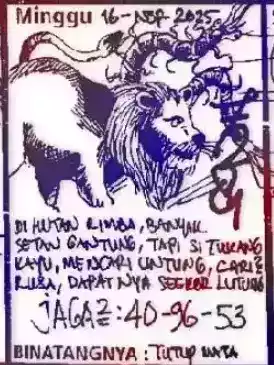 Minggu 16-NOP-2025
DI HUTAN RIMBA, BANYAK
SETAN GANTUNG, TAPI SI TUKANG
KAYU, MENCARI UNTUNG, CARI2
RUSA, DAPATNYA SEEKOR LUTUNG
JAGA2: 40-96-53
BINATANGNYA: TUTUP MATA